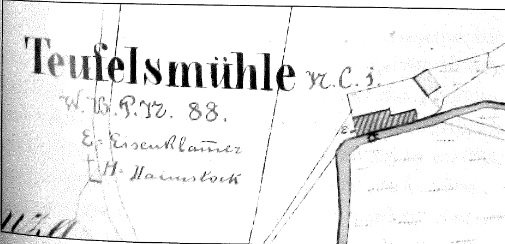 Teufelsmühle N. C. 1.
W. B. P. N. 88.
E. Eisenklam̄er
H. Haimstock
E.
nza